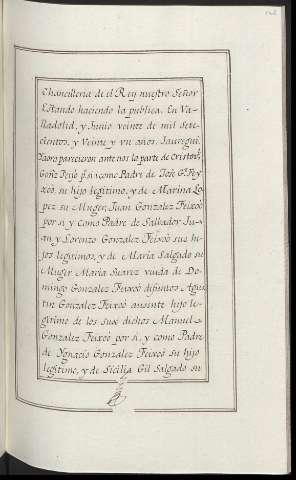 Chancilleria de el Rey nuestro Señor
Estando haciendo la publica. En Va-
lladolid, y Junio veinte de mil sete-
cientos, y Veinte y vn años. Jauregui.
parecieron ante nos la parte de Cristov.l
Gonz. por si como Padre de Jose G.z Fey-
xoó, su hijo legitimo, y de Marina Lo-
pez su Muger, Juan Gonzalez Feixoó
por si y como Padre de Salbador Ju-
an y Lorenzo Gonzalez Feixoó sus hi-
jos legitimos, y de Maria Salgado su
Muger Maria Suarez viuda de Do-
mingo Gonzalez Feixoó difuntos Agus-
tin Gonzalez Feixoó ausente hijo le-
gitimo de los sux dichos Manuel
Gonzalez Feixoó por si, y como Padre
de Ygnacio Gonzalez Feixoó su hijo
legitimo, y de Sicilia Gil Salgado su